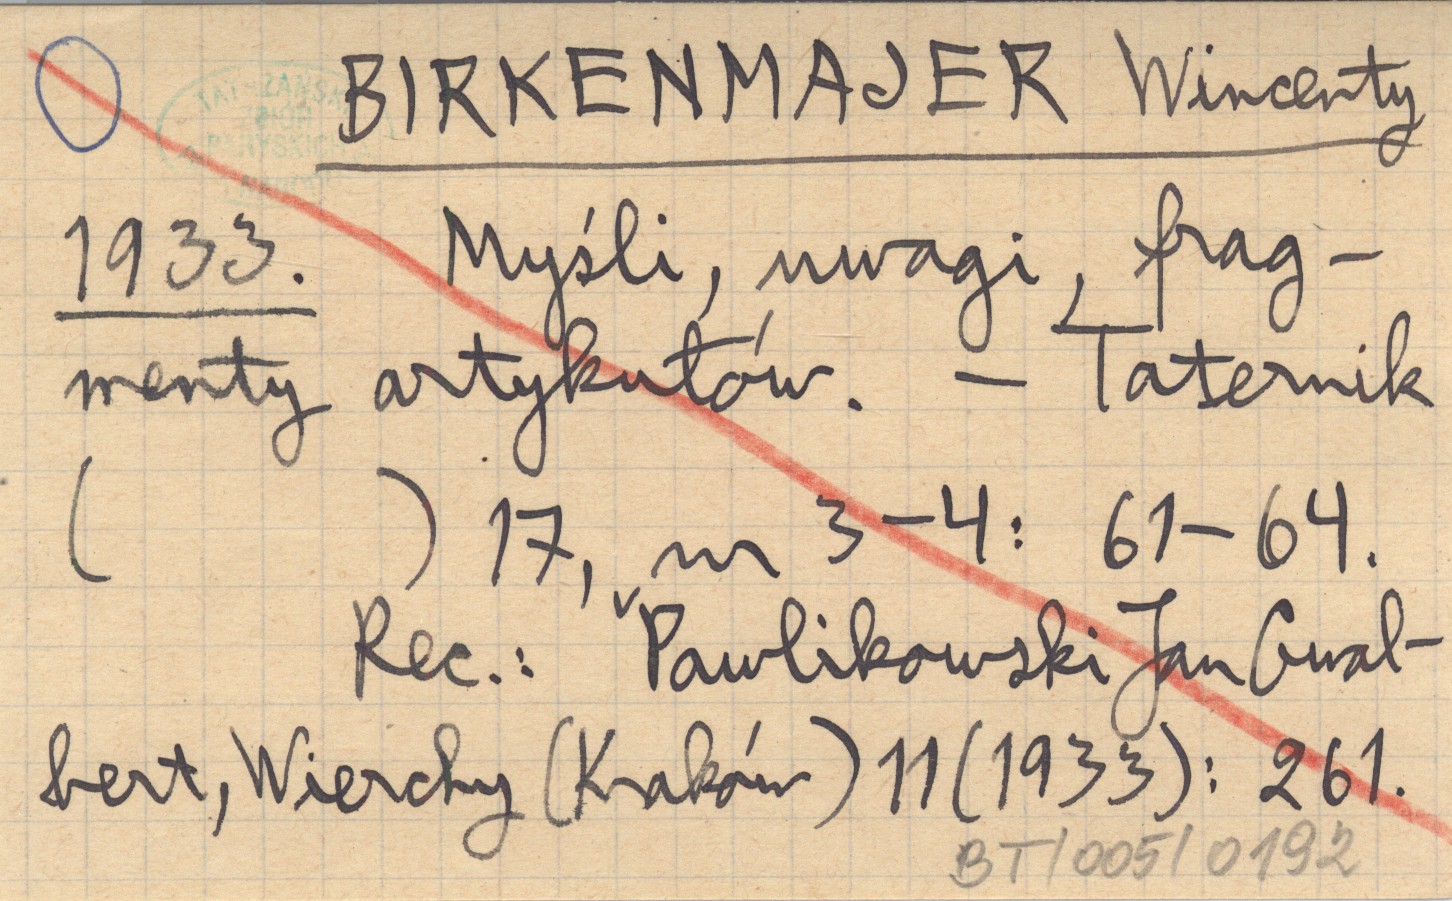 BIRKENMAJER Wincenty
TATRZAŃSK
ZBIÓR
PARYSKICH
1933. Myśli, uwagi, frag-
menty artykułów. — Taternik
( ) 17, nr 3-4: 61-64.
Rec.: Pawlikowski Jan Gwal-
bert, Wierchy (Kraków) 11 (1933): 261.
BT/005/0192